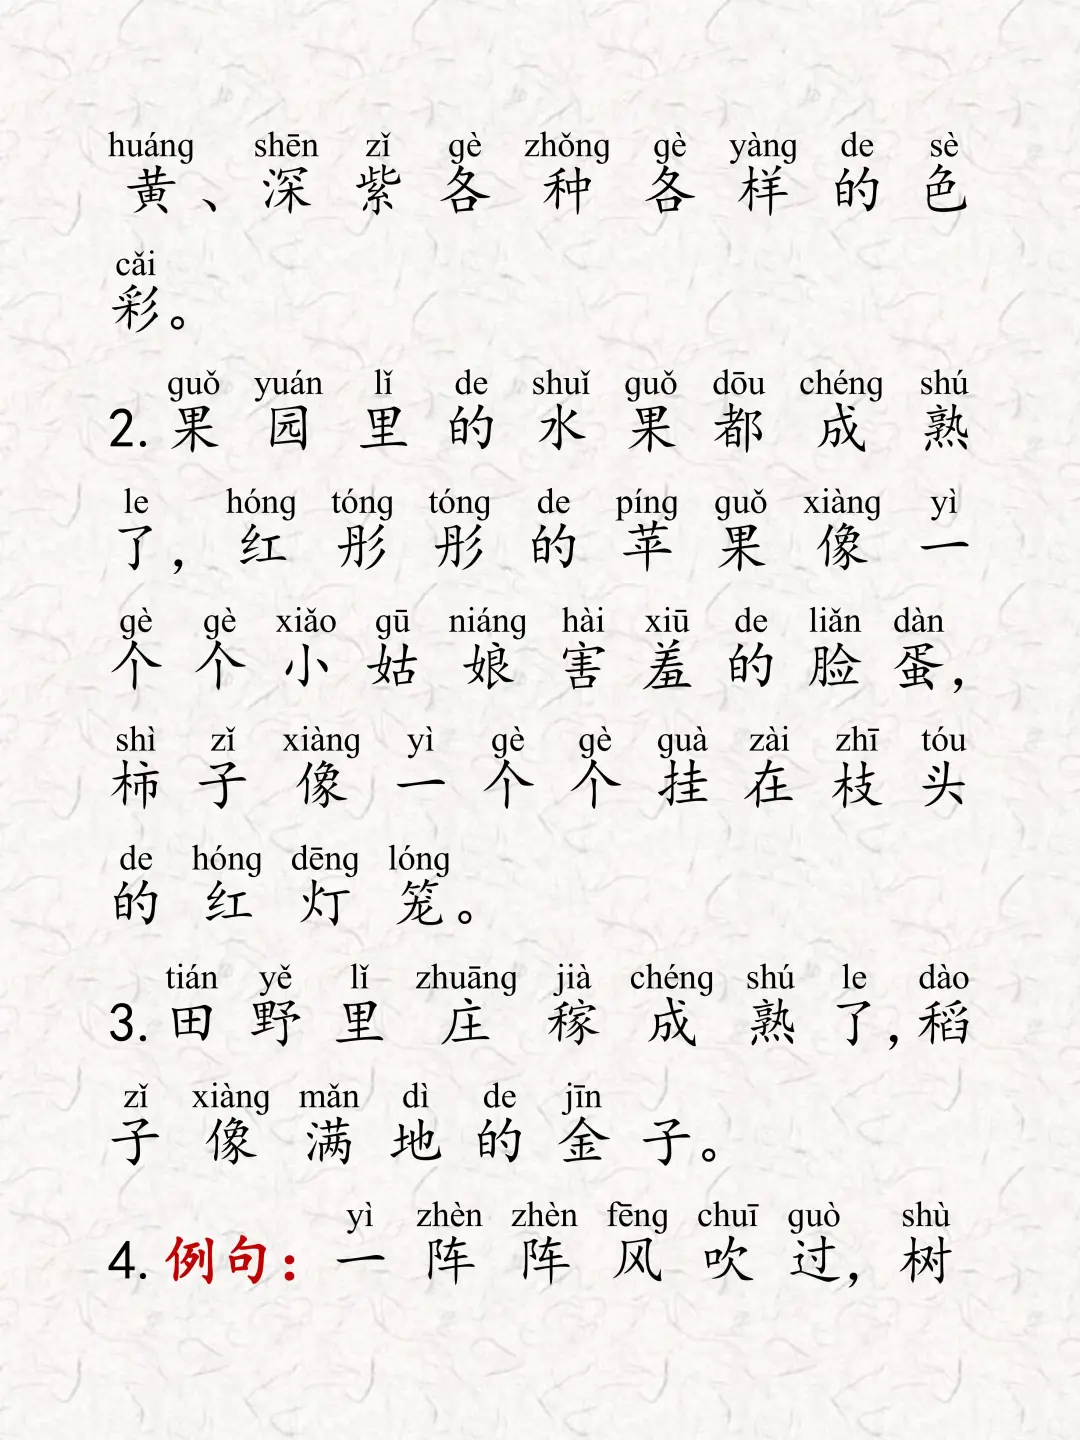 huáng shēn zǐ gè zhǒng gè yàng de sè
黄、深紫各种各样的色
cǎi
彩。
guǒ yuán lǐ de shuǐ guǒ dōu chéng shú
2.果园里的水果都成熟
le hóng tóng tóng de píng guǒ xiàng yì
了，红彤彤的苹果像一
gè gè xiǎo gū niáng hài xiū de liǎn dàn
个个小姑娘害羞的脸蛋，
shì zǐ xiàng yì gè gè guà zài zhī tóu
柿子像一个个挂在枝头
de hóng dēng lóng
的红灯笼。
tián yě lǐ zhuāng jià chéng shú le dào
3.田野里庄稼成熟了，稻
zǐ xiàng mǎn dì de jīn
子像满地的金子。
yì zhèn zhèn fēng chuī guò shù
4.例句：一阵阵风吹过，树